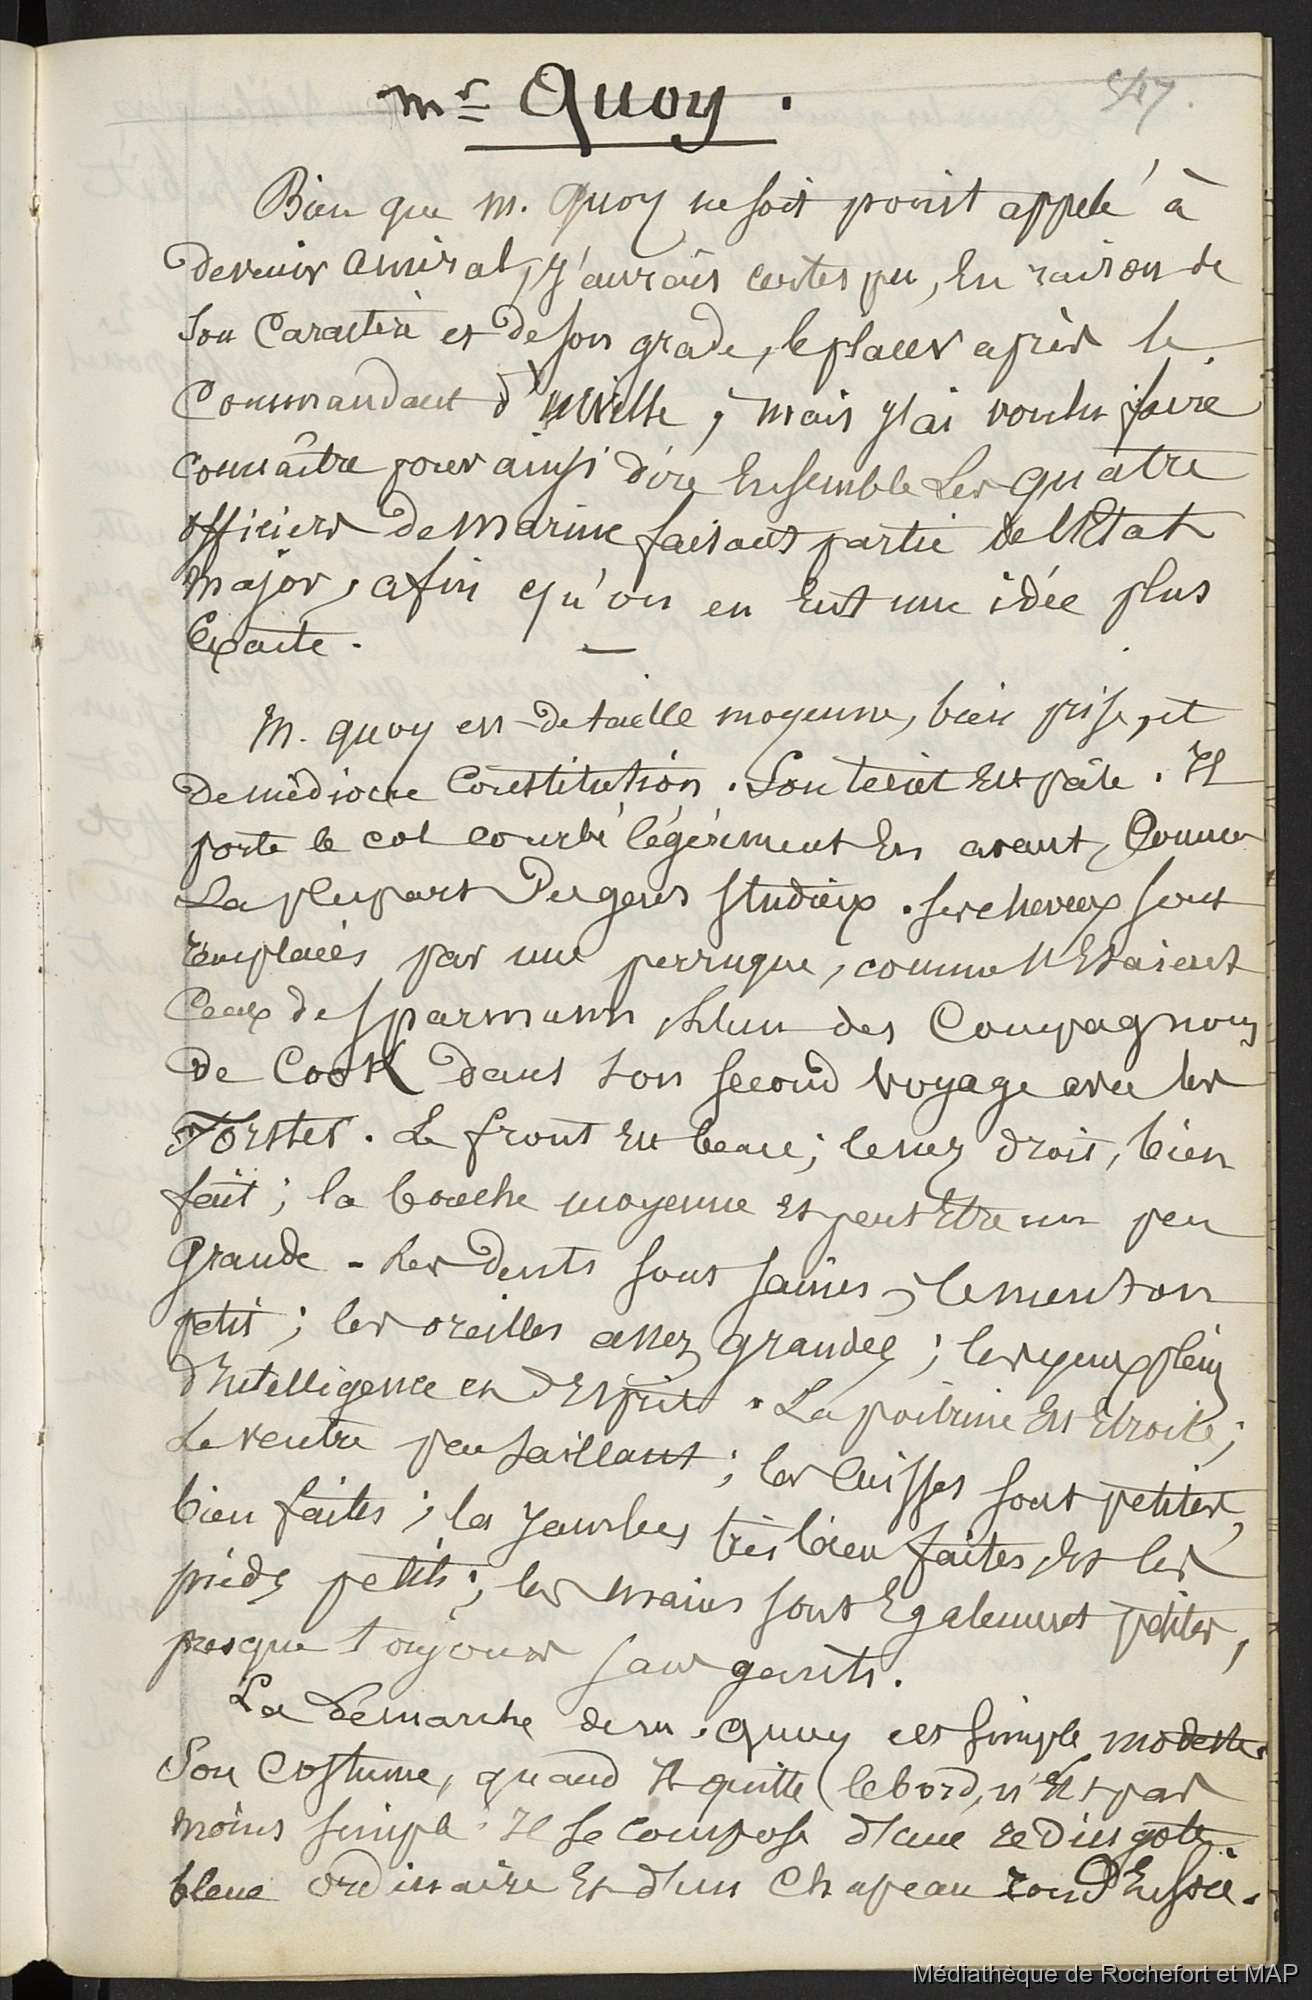 Mr Quoy.
547.
Bien que M. Quoy ne soit point appelé à
devenir amiral, j'aurais certes pu, En raison de
Son Caractère et de son grade, le placer après le
Commandant d'urville ; mais j'ai voulu faire
connaître pour ainsi dire Ensemble Les quatre
officiers de marine faisant partie de l'Etat
major, afin qu'on en Eut une idée plus
Exacte. —
M. quoy est de taille moyenne, bien prise, et
de médiocre Constitution. Son teint Est pâle. Il
porte le col courbé légèrement En avant, Comme
La plupart Des gens studieux. Ses cheveux sont
remplacés par une perruque, comme l'Etaient
Ceux de Sparmann, l'un des Compagnons
de Cook dans son second voyage avec les
Forster. Le front Est beau ; le nez droit, bien
fait ; la bouche moyenne Et peut Etre un peu
Grande - Les Dents sont saines ; le menton
petit ; les oreilles assez grandes ; les yeux pleins
d'Intelligence et d'Esprit. La poitrine Est Etroite ;
Le ventre peu saillant ; les Cuisses sont petites,
bien faites ; les Jambes très bien faites Et les
pieds petits ; les mains sont Egalement petites,
presque toujours sans gants.
La Démarche de m. quoy est simple modeste.
Son Costume, quand Il quitte le bord, n'Est pas
moins simple. Il se compose d'une redingote
bleue ordinaire Et d'un Chapeau rond En soie.
Médiathèque de Rochefort et MAP